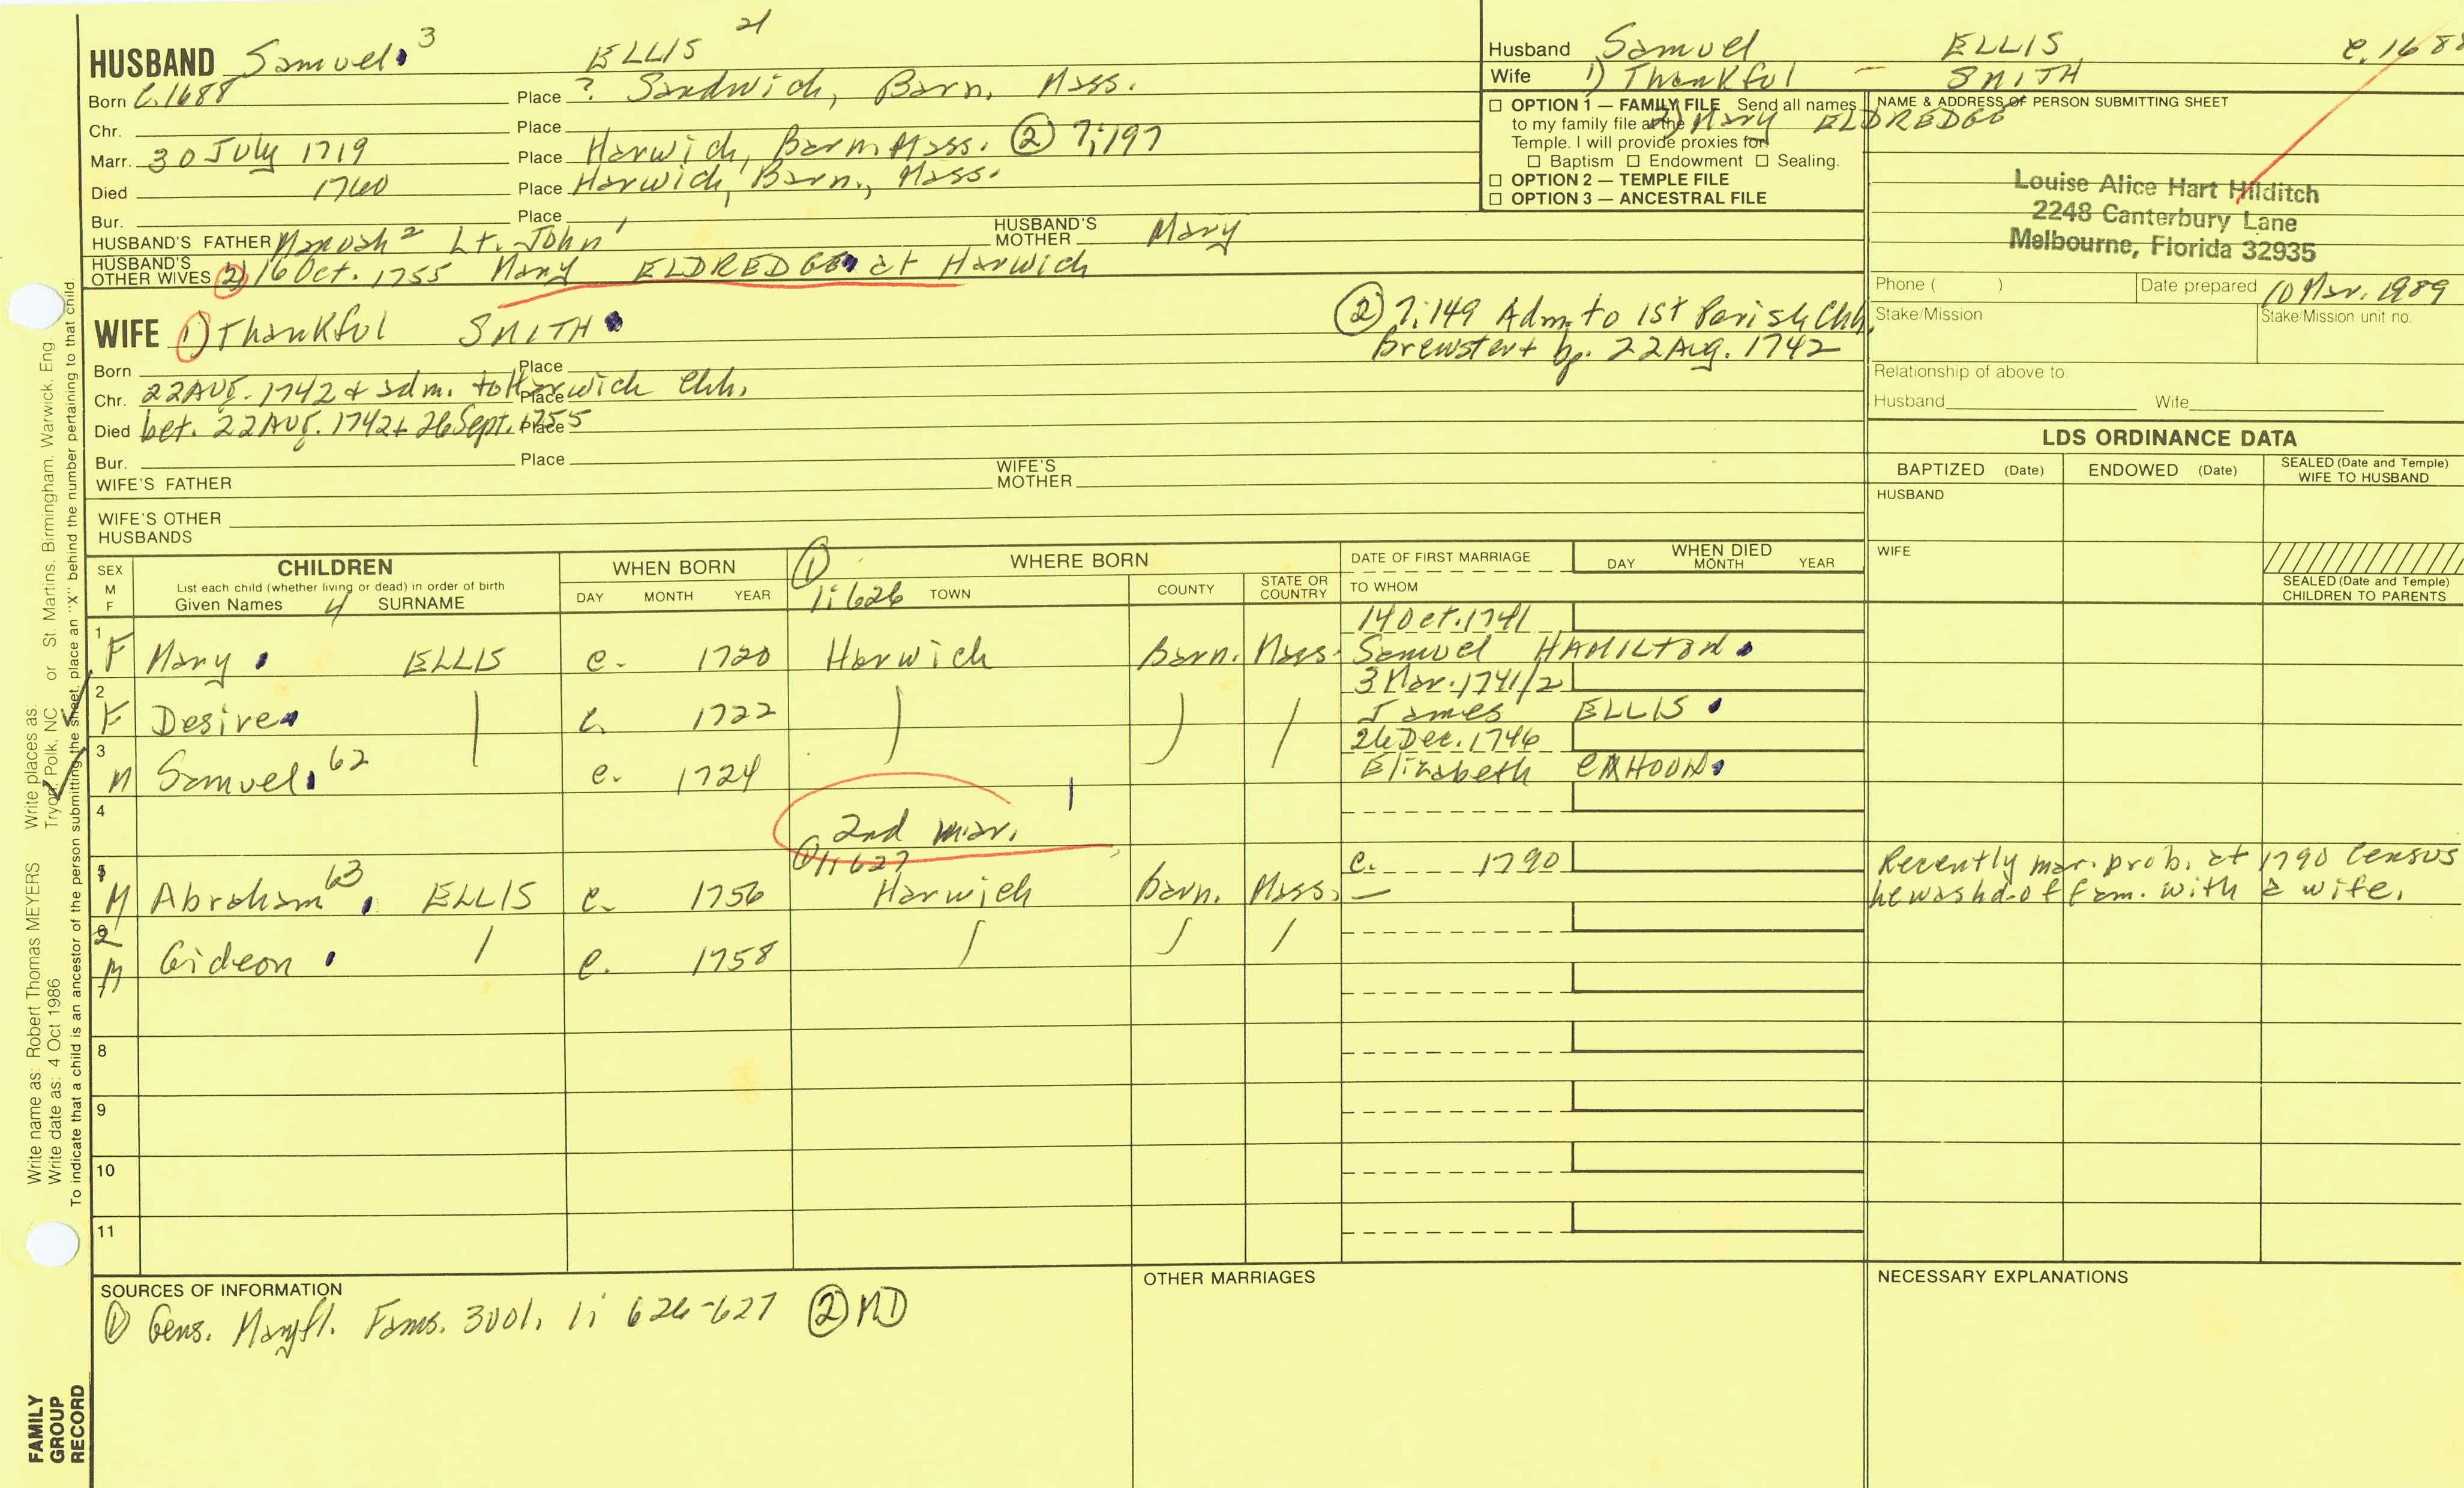 21
HUSBAND Samuel 3 ELLIS
Born c.1688 Place ? Sandwich, Barn. Mass.
Chr. Place
Marr. 30 July 1719 Place Harwich, Barn. Mass. ② 7:197
Died 1760 Place Harwich, Barn., Mass.
Bur. Place
HUSBAND'S FATHER Manoah 2 Lt. John 1 HUSBAND'S MOTHER Mary
HUSBAND'S OTHER WIVES 2) 16 Oct. 1755 Mary ELDREDGE at Harwich
WIFE 1) Thankful SMITH
② 7:149 Adm. to 1st Parish Chh.
Brewster + bp. 22 Aug. 1742
Born Place
Chr. 22 Aug. 1742 & adm. to Harwich Chh. Place
Died bet. 22 Aug. 1742 + 26 Sept. 1755 Place
Bur. Place
WIFE'S FATHER WIFE'S MOTHER
WIFE'S OTHER HUSBANDS
Husband Samuel ELLIS c.1688
Wife 1) Thankful - SMITH
2) Mary ELDREDGE
OPTION 1 — FAMILY FILE Send all names
to my family file at the
Temple. I will provide proxies for
Baptism Endowment Sealing.
OPTION 2 — TEMPLE FILE
OPTION 3 — ANCESTRAL FILE
NAME & ADDRESS OF PERSON SUBMITTING SHEET
Louise Alice Hart Hilditch
2248 Canterbury Lane
Melbourne, Florida 32935
Phone ( ) Date prepared 10 Mar. 1989
Stake/Mission Stake/Mission unit no.
Relationship of above to:
Husband Wife
LDS ORDINANCE DATA
BAPTIZED (Date) ENDOWED (Date) SEALED (Date and Temple) WIFE TO HUSBAND
HUSBAND
WIFE
SEALED (Date and Temple) CHILDREN TO PARENTS
SEX M F
CHILDREN
List each child (whether living or dead) in order of birth
Given Names 4 SURNAME
WHEN BORN
DAY MONTH YEAR
① 1:626
WHERE BORN
TOWN COUNTY STATE OR COUNTRY
DATE OF FIRST MARRIAGE
TO WHOM
WHEN DIED
DAY MONTH YEAR
14 Oct. 1741
1 F Mary ELLIS c. 1720 Harwich Barn. Mass. Samuel HAMILTON
3 Mar. 1741/2
2 F Desire c. 1722 James ELLIS
26 Dec. 1746
3 M Samuel 62 c. 1724 Elizabeth CAHOON
4
2nd mar.
① 1:627
c. 1790
1 M Abraham 63 ELLIS c. 1756 Harwich Barn. Mass. —
Recently mar. prob. at 1790 Census
he was hd. of fam. with a wife.
2 M Gideon c. 1758
7
8
9
10
11
SOURCES OF INFORMATION
① Gens. Mayfl. Fams. 3 vol. 1: 626-627 ② MD
OTHER MARRIAGES
NECESSARY EXPLANATIONS
Write name as: Robert Thomas MEYERS Write places as: Tryon, Polk, NC or St. Martins, Birmingham, Warwick, Eng
Write date as: 4 Oct 1986
To indicate that a child is an ancestor of the person submitting the sheet, place an "X" behind the number pertaining to that child.
FAMILY
GROUP
RECORD